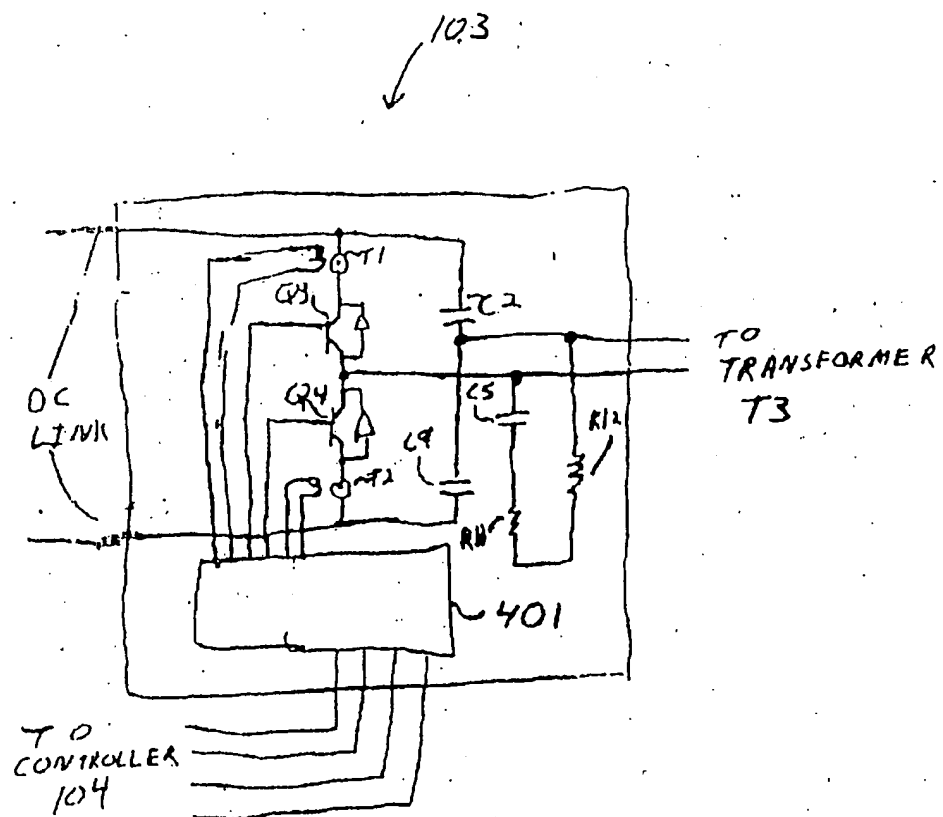 103
T1
Q3
C2
TO
TRANSFORMER
T3
C5
DC
LINK
Q4
R12
C4
T2
R11
401
TO
CONTROLLER
104